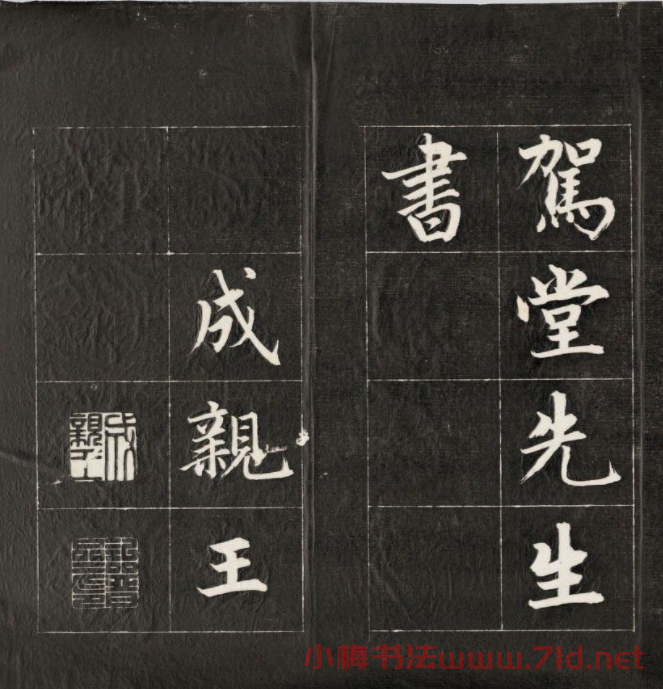 駕堂先生
書
成親王
成親王
小梅书法www.7ld.net